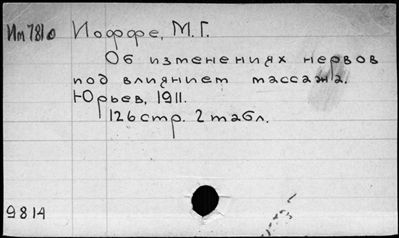 Им 781о Иоффе, М. Г.
Об изменениях нервов
под влиянием массажа.
Юрьев, 1911.
126 стр. 2 табл.
9814